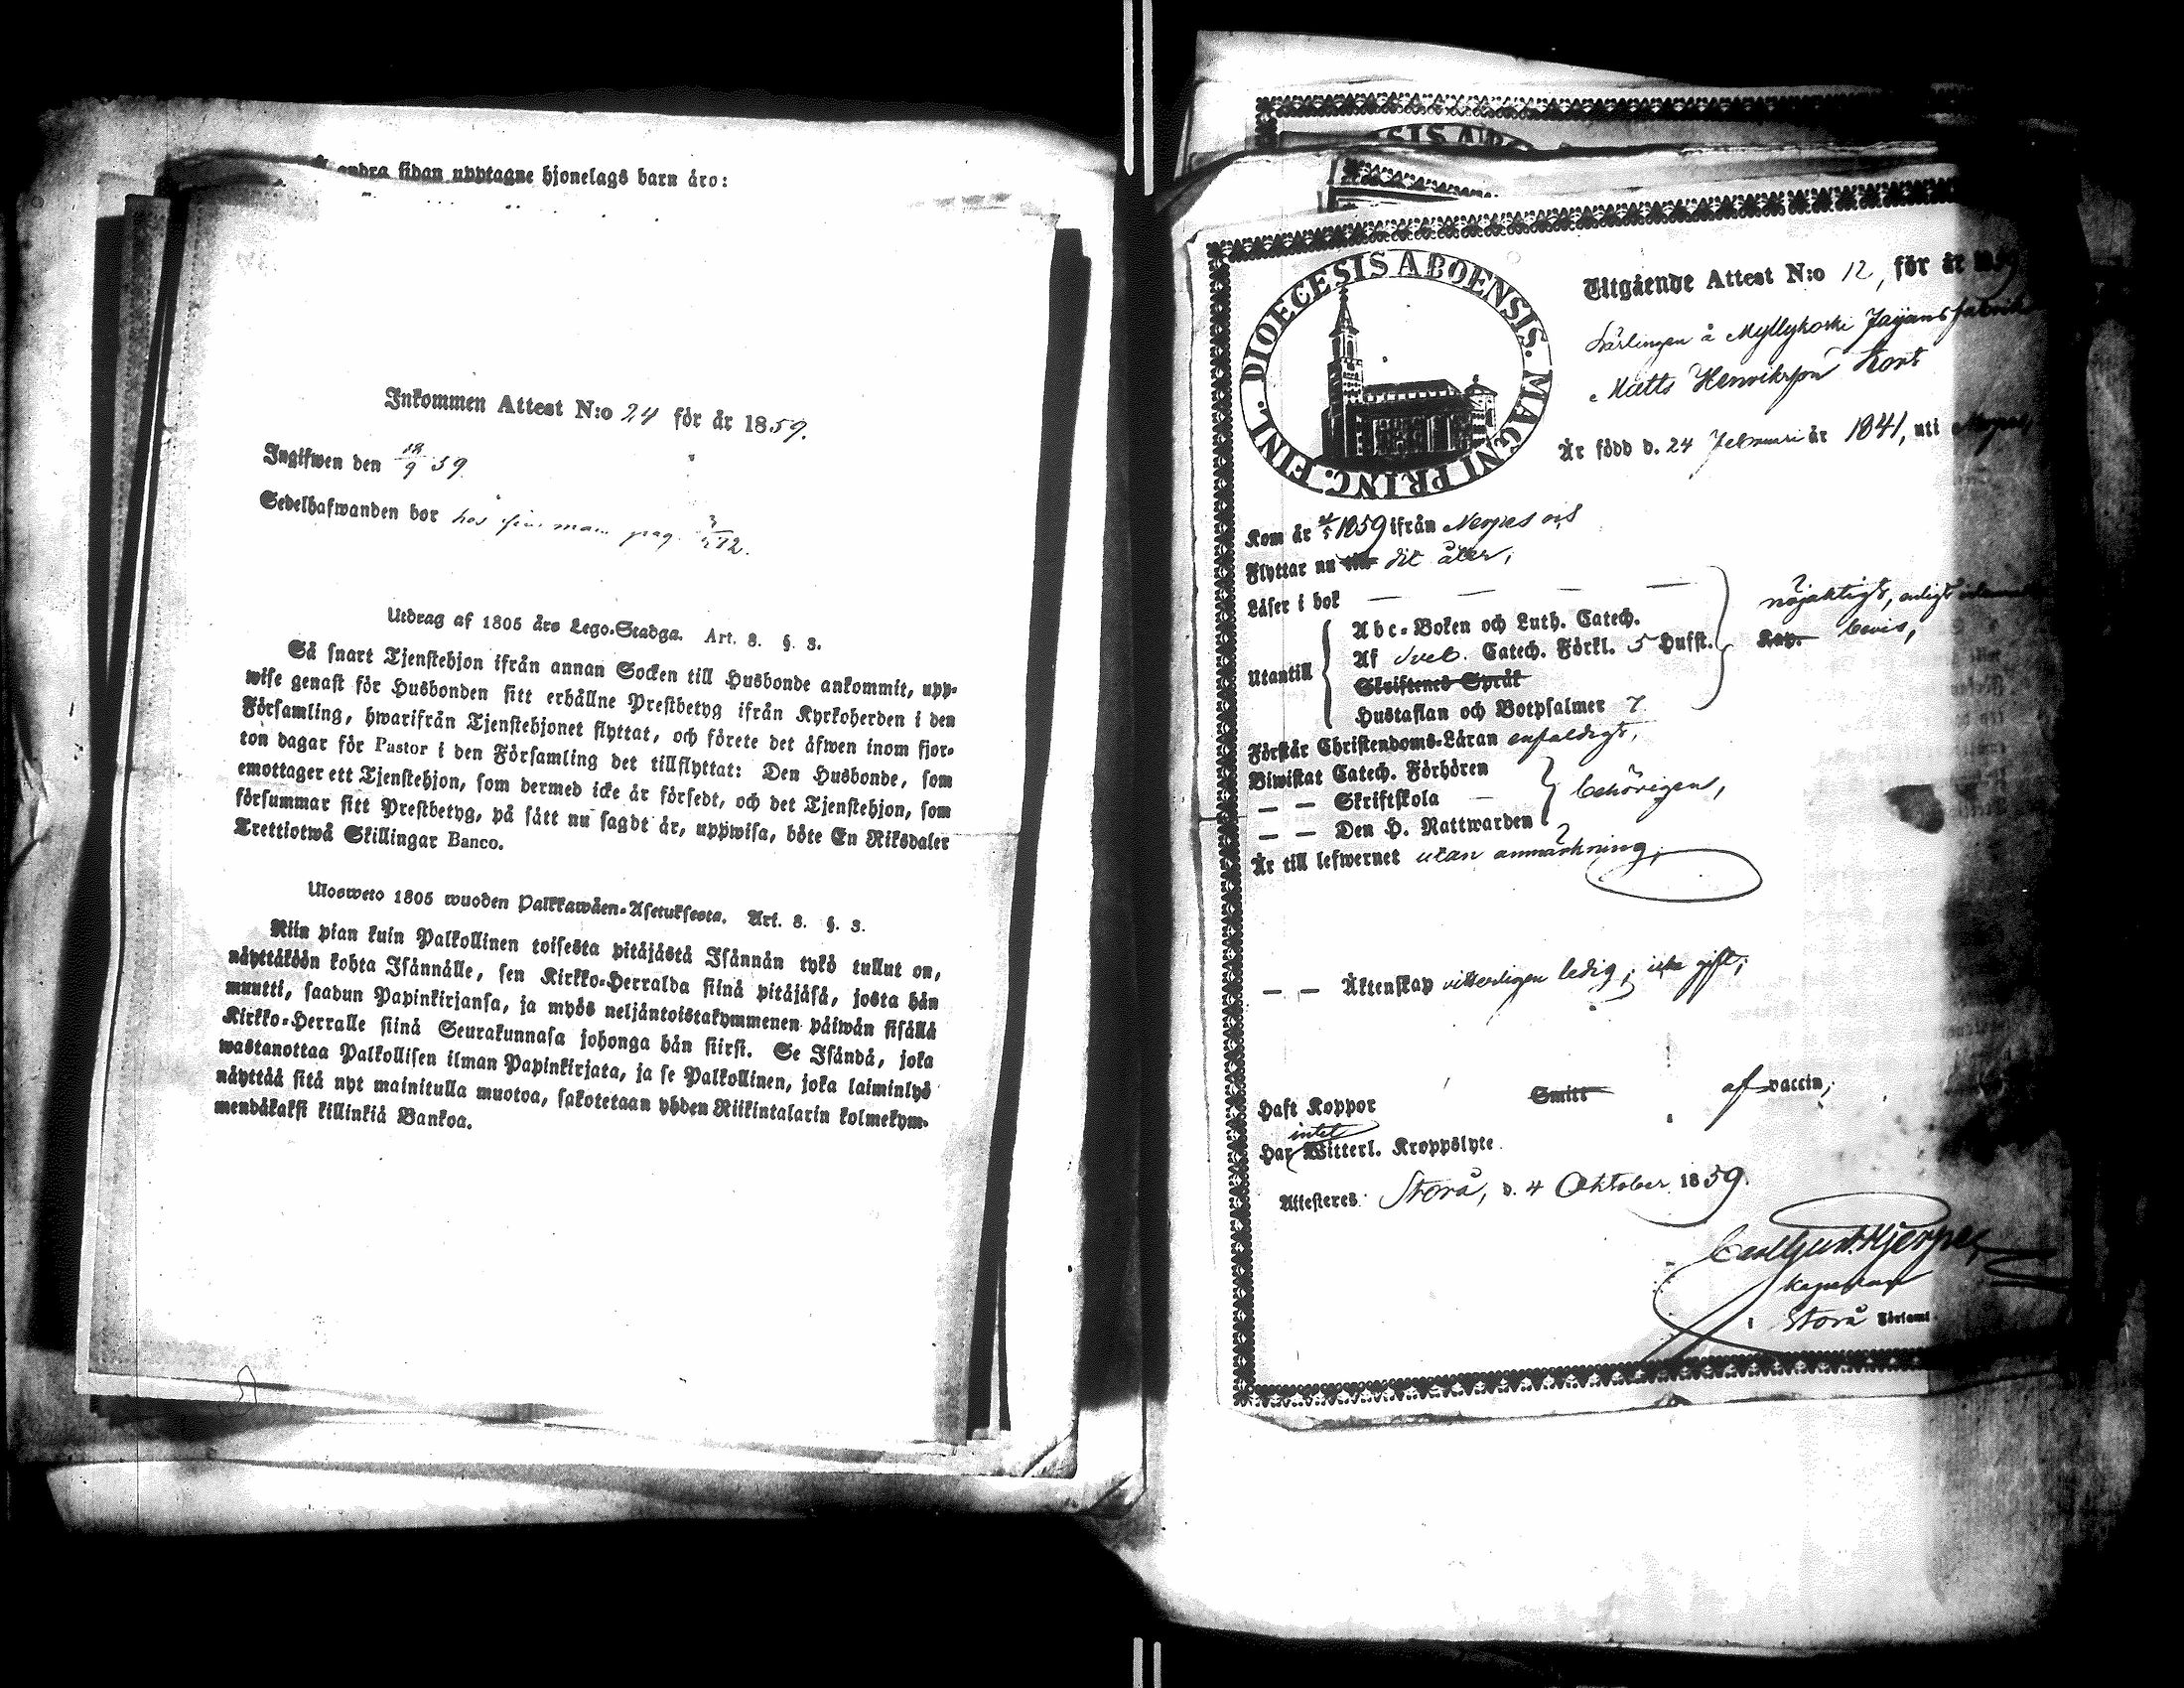 andra sidan upptagne hjonelags barn äro:
Inkommen Attest N:o 24 för år 1859.
Ingifwen den 18/9 59.
Sedelhafwanden bor hos sin man pag.
Utdrag af 1805 års Lego-Stadga. Art. 8. §. 3.
Så snart Tjenstehjon ifrån annan Socken till Husbonde ankommit, upp-
wise genast för Husbonden sitt erhållne Prestbetyg ifrån Kyrkoherden i den
Församling, hwarifrån Tjenstehjonet flyttat, och förete det äfwen inom fjor-
ton dagar för Pastor i den Församling det tillflyttat: Den Husbonde, som
emottager ett Tjenstehjon, som dermed icke är försedt, och det Tjenstehjon, som
försummar sitt Prestbetyg, på sätt nu sagdt är, uppwisa, böte En Riksdaler
Trettiotwå Skillingar Banco.
Ulosweto 1805 wuoden Palkkawäen-Asetuksesta. Art. 8. §. 3.
Niin pian kuin Palkollinen toisesta pitäjästä Isännän tykö tullut on,
näyttäköön kohta Isännälle, sen Kirkko-Herralda siinä pitäjäsä, josta hän
muutti, saadun Papinkirjansa, ja myös neljäntoistakymmenen päiwän sisällä
Kirkko-Herralle siinä Seurakunnasa johonga hän siirsi. Se Isändä, joka
wastanottaa Palkollisen ilman Papinkirjata, ja se Palkollinen, joka laiminlyö
näyttää sitä nyt mainitulla muotoa, sakotetaan yhden Riikintalarin kolmekym-
mendäkaksi killinkiä Bankoa.
SIS ABO
DIOECESIS ABOENSIS. MAGNI PRINC. FINL.
Utgående Attest N:o 12, för år 1859
Lärlingen å Myllykoski Fajansfabrik
Matts Henriksson Kort
Är född d. 24 Februari år 1841, uti Nerpes,
Kom år 1859 ifrån Nerpes
Flyttar nu till dit åter,
Läser i bok — — — —
nöjaktigt, enligt
Utantill
Abc-Boken och Luth. Catech.
Af Sveb. Catech. Förkl. 5 Hufst.
Kap. bevis,
Skriftenes Språk
Hustaflan och Botpsalmer 7
Förstår Christendoms-Läran enfaldigt,
Biwistat Catech. Förhören
— — Skriftskola — behörigen,
— — Den H. Nattwarden
Är till lefwernet utan anmärkning,
— — Äktenskap vitterligen ledig, icke gift;
Haft Koppor Smitt af vaccin,
intet
Har Witterl. Kroppslyte
Attesteres: Storå, d. 4 Oktober 1859.
Carl Gust. Hjerpe
Kapellan
i Storå Församl.